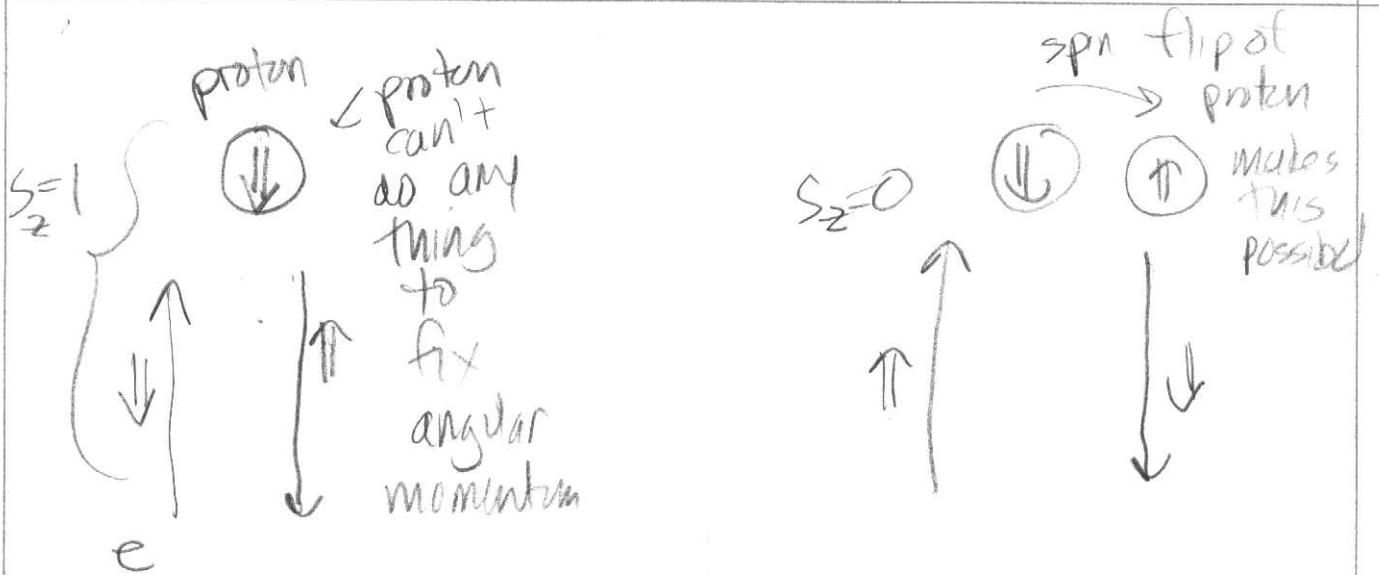 proton
proton
can't
do any
thing
to
fix
angular
momentum
S_z=1
e
spin flip of
proton
makes
this
possible
S_z=0